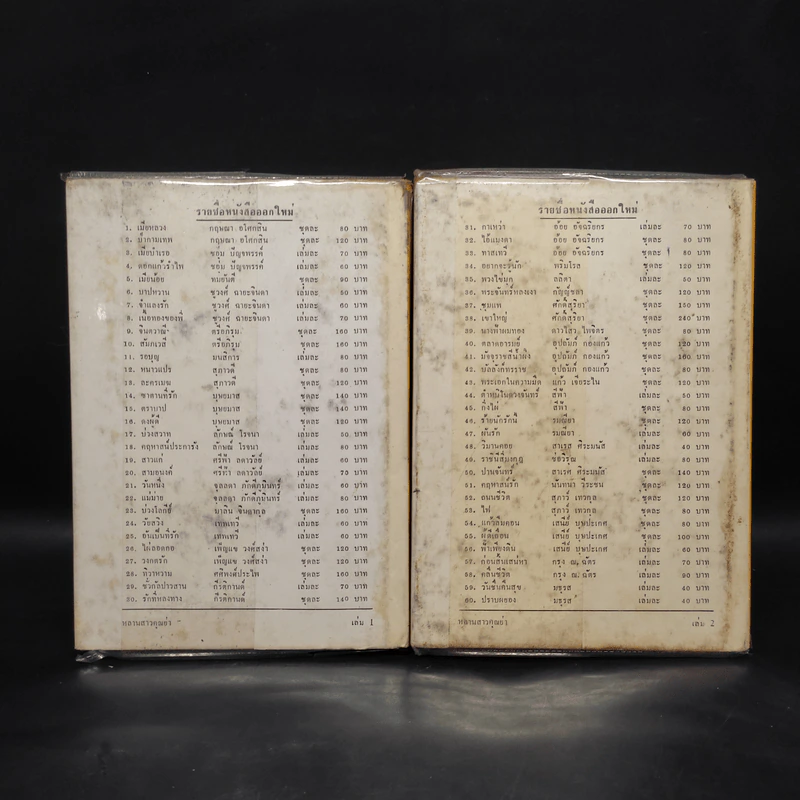 รายชื่อหนังสือออกใหม่
1. เมียหลวง กฤษณา อโศกสิน ชุดละ 80 บาท
2. ป้ากามเทพ กฤษณา อโศกสิน ชุดละ 120 บาท
3. เมียบำเรอ ชอุ่ม ปัญจพรรค์ เล่มละ 70 บาท
4. ดอกแก้วรำไพ ชอุ่ม ปัญจพรรค์ เล่มละ 60 บาท
5. เมียน้อย ทมยันตี ชุดละ 90 บาท
6. บาปหวาน ชูวงศ์ ฉายะจินดา เล่มละ 50 บาท
7. จำเลยรัก ชูวงศ์ ฉายะจินดา เล่มละ 60 บาท
8. เนื้อทองของพี่ ชูวงศ์ ฉายะจินดา เล่มละ 70 บาท
9. จินตวาณี ตรีอภิรุม ชุดละ 160 บาท
10. สัมภเวสี ตรีอภิรุม ชุดละ 160 บาท
11. รอบุญ เล่มละ 80 บาท
12. สุภาวดี เล่มละ 80 บาท
13. ละครเมฆ สุภาวดี ชุดละ 120 บาท
14. ซาลานที่รัก บุษยมาส ชุดละ 140 บาท
15. ตราบาป บุษยมาส ชุดละ 140 บาท
16. ดงผู้ดี บุษยมาส ชุดละ 120 บาท
17. บ่วงสวาท ลักษณ์ โรจนา เล่มละ 50 บาท
18. คฤหาสน์ประการัง ลักษณ์ โรจนา เล่มละ 80 บาท
19. สาวแก่ ศรีฟ้า ลดาวัลย์ เล่มละ 60 บาท
20. สามอนงค์ ศรีฟ้า ลดาวัลย์ เล่มละ 70 บาท
21. วันหนึ่ง จุลลดา ภักดีภูมินทร์ เล่มละ 60 บาท
22. แม่ม่าย จุลลดา ภักดีภูมินทร์ เล่มละ 80 บาท
23. บ่วงโลกีย์ มาลัน จินดากุล ชุดละ 160 บาท
24. วัยสวิง เทพเทวี เล่มละ 60 บาท
25. ยันเย็นที่รัก เทพเทวี เล่มละ 60 บาท
26. ไผ่ลอดกอ เพ็ญแข วงศ์สง่า ชุดละ 120 บาท
27. วงกตรัก เพ็ญแข วงศ์สง่า ชุดละ 120 บาท
28. ทิวาหวาม ศศิพงศ์ประไพ ชุดละ 160 บาท
29. ชั่วกัลปาวสาน กีรติกานต์ เล่มละ 70 บาท
30. รักที่หลงทาง กีรติกานต์ ชุดละ 140 บาท
หลานสาวคุณย่า เล่ม 1
รายชื่อหนังสือออกใหม่
31. กาเหว่า อ้อย อัจฉริยกร เล่มละ 70 บาท
32. ไอ้แมงดา อ้อย อัจฉริยกร ชุดละ 80 บาท
33. ทาสเทวี อ้อย อัจฉริยกร ชุดละ 80 บาท
34. อยากจะรู้นัก พริ้มโรส ชุดละ 120 บาท
35. พวงไข่มุก ลลิตา เล่มละ 50 บาท
36. พระจันทร์หลงเงา กัญญ์ชลา ชุดละ 120 บาท
37. ชุมแพ ศักดิ์สุริยา ชุดละ 150 บาท
38. เขาใหญ่ ศักดิ์สุริยา ชุดละ 240 บาท
39. นางฟ้าผมทอง ดาวไสว ไพจิตร ชุดละ 80 บาท
40. ตลาดอารมย์ อุปถัมภ์ กองแก้ว ชุดละ 120 บาท
41. มัจจุราชสีน้ำผึ้ง อุปถัมภ์ กองแก้ว ชุดละ 160 บาท
42. บัลลังก์ทรราช อุปถัมภ์ กองแก้ว ชุดละ 80 บาท
43. พระเอกในความมืด แก้ว เจียระไน ชุดละ 120 บาท
44. ตำหนิในดวงจันทร์ สีฟ้า เล่มละ 50 บาท
45. กิ่งไผ่ สีฟ้า ชุดละ 80 บาท
46. ร้ายนักรักนี้ รมณียา ชุดละ 120 บาท
47. ผันรัก รมณียา เล่มละ 60 บาท
48. วิมานคอย สาเรศ ศิระมนัส เล่มละ 40 บาท
49. ราชินีสิ้นมงกุฎ ช่อวิรุณ เล่มละ 80 บาท
50. ปานจันทร์ สาเรศ ศิระมนัส ชุดละ 140 บาท
51. คฤหาสน์รัก นันทนา วีระชน ชุดละ 120 บาท
52. ถนนชีวิต สุภาว์ เทวกุล ชุดละ 120 บาท
53. ไฟ สุภาว์ เทวกุล ชุดละ 80 บาท
54. แก้วลืมคอน เสนีย์ บุษปะเกศ ชุดละ 80 บาท
55. ผีดีเถื่อน เสนีย์ บุษปะเกศ ชุดละ 100 บาท
56. ฟ้าเพียงดิน เสนีย์ บุษปะเกศ เล่มละ 60 บาท
57. ก่อนสิ้นเสน่หา กรุง ณ ฉัตร เล่มละ 70 บาท
58. คลื่นชีวิต กรุง ณ ฉัตร เล่มละ 90 บาท
59. วันชื่นคืนสุข มธุรส เล่มละ 40 บาท
60. ปราบพยอง มธุรส เล่มละ 40 บาท
หลานสาวคุณย่า เล่ม 2